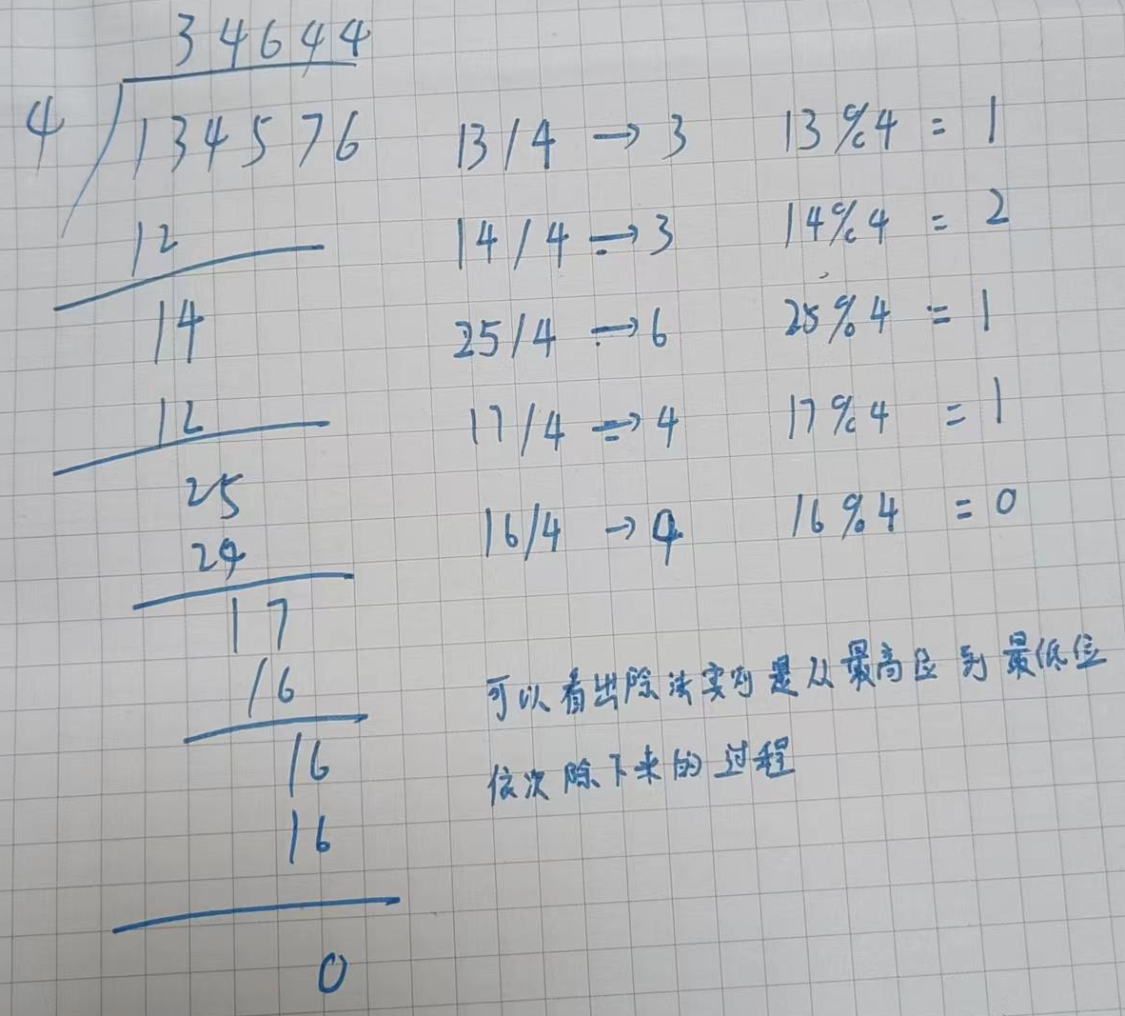 34644
4 134576
13/4 → 3 13%4 = 1
12
14/4 → 3 14%4 = 2
14
25/4 → 6 25%4 = 1
12
17/4 → 4 17%4 = 1
25
16/4 → 4 16%4 = 0
24
17
可以看出除法实则是从最高位到最低位
16
16
依次除下来的过程
16
0